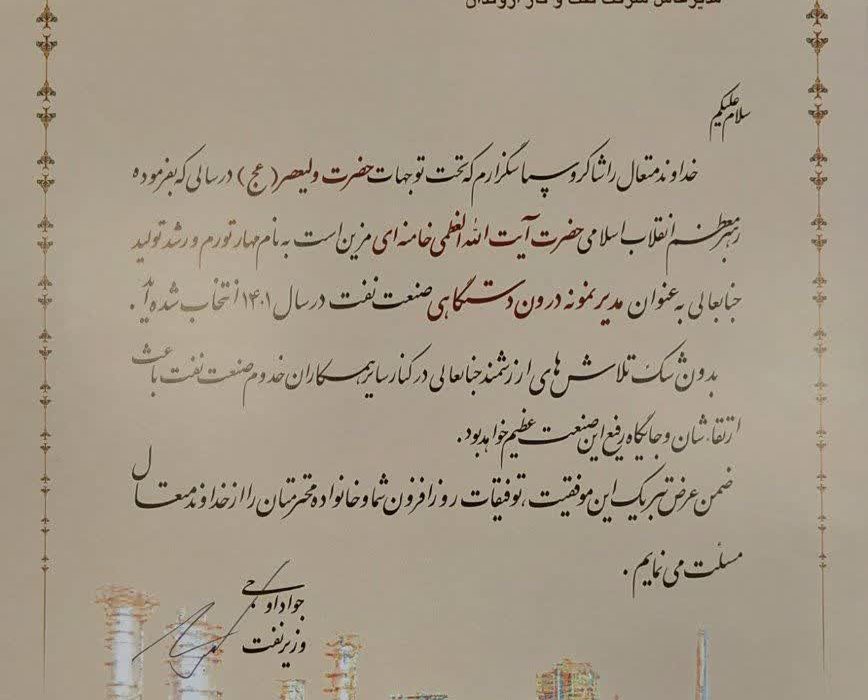 مدیرعامل شرکت نفت و گاز اروندان
سلام علیکم
خداوند متعال را شاکر و سپاسگزارم که تحت توجهات حضرت ولیعصر (عج) در سالی که بفرموده
رهبر معظم انقلاب اسلامی حضرت آیت الله العظمی خامنه ای مزین است به نام مهار تورم و رشد تولید
جنابعالی به عنوان مدیر نمونه درون دستگاهی صنعت نفت در سال ۱۴۰۱ انتخاب شده اید.
بدون شک تلاش های ارزشمند جنابعالی در کنار سایر همکاران خدوم صنعت نفت باعث
ارتقاء شان و جایگاه رفیع این صنعت عظیم خواهد بود.
ضمن عرض تبریک این موفقیت، توفیقات روزافزون شما و خانواده محترمتان را از خداوند متعال
مسئلت می نمایم.
جواد اوجی
وزیر نفت